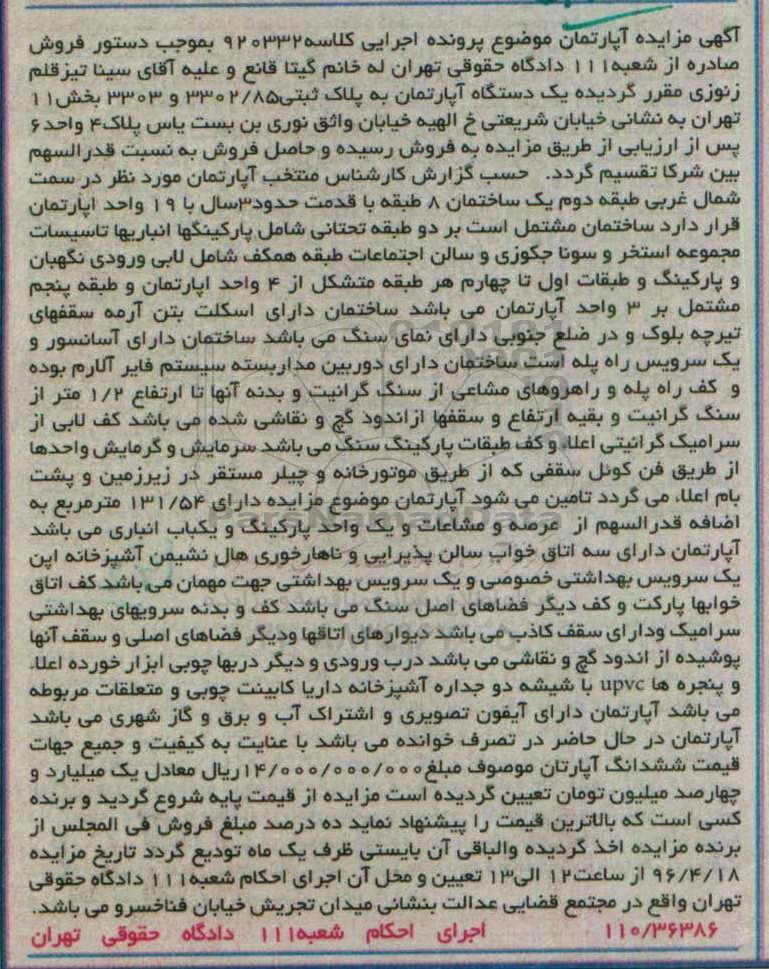 آگهی مزایده آپارتمان موضوع پرونده اجرایی کلاسه۹۲۰۳۳۲ بموجب دستور فروش
صادره از شعبه۱۱۱ دادگاه حقوقی تهران له خانم گیتا قانع و علیه آقای سینا تیزقلم
زنوزی مقرر گردیده یک دستگاه آپارتمان به پلاک ثبتی۳۳۰۲/۸۵ و ۳۳۰۳ بخش۱۱
تهران به نشانی خیابان شریعتی خ الهیه خیابان واثق نوری بن بست یاس پلاک۴ واحد۶
پس از ارزیابی از طریق مزایده به فروش رسیده و حاصل فروش به نسبت قدرالسهم
بین شرکا تقسیم گردد. حسب گزارش کارشناس منتخب آپارتمان مورد نظر در سمت
شمال غربی طبقه دوم یک ساختمان ۸ طبقه با قدمت حدود۳سال با ۱۹ واحد اپارتمان
قرار دارد ساختمان مشتمل است بر دو طبقه تحتانی شامل پارکینگها انباریها تاسیسات
مجموعه استخر و سونا جکوزی و سالن اجتماعات طبقه همکف شامل لابی ورودی نگهبان
و پارکینگ و طبقات اول تا چهارم هر طبقه متشکل از ۴ واحد اپارتمان و طبقه پنجم
مشتمل بر ۳ واحد آپارتمان می باشد ساختمان دارای اسکلت بتن آرمه سقفهای
تیرچه بلوک و در ضلع جنوبی دارای نمای سنگ می باشد ساختمان دارای آسانسور و
یک سرویس راه پله است ساختمان دارای دوربین مداربسته سیستم فایر آلارم بوده
و کف راه پله و راهروهای مشاعی از سنگ گرانیت و بدنه آنها تا ارتفاع ۱/۲ متر از
سنگ گرانیت و بقیه ارتفاع و سقفها ازاندود گچ و نقاشی شده می باشد کف لابی از
سرامیک گرانیتی اعلاء وکف طبقات پارکینگ سنگ می باشد سرمایش و گرمایش واحدها
از طریق فن کوئل سقفی که از طریق موتورخانه و چیلر مستقر در زیرزمین و پشت
بام اعلاء می گردد تامین می شود آپارتمان موضوع مزایده دارای ۱۳۱/۵۴ مترمربع به
اضافه قدرالسهم از عرصه و مشاعات و یک واحد پارکینگ و یکباب انباری می باشد
آپارتمان دارای سه اتاق خواب سالن پذیرایی و ناهارخوری هال نشیمن آشپزخانه اپن
یک سرویس بهداشتی خصوصی و یک سرویس بهداشتی جهت مهمان می باشد کف اتاق
خوابها پارکت و کف دیگر فضاهای اصل سنگ می باشد کف و بدنه سرویهای بهداشتی
سرامیک ودارای سقف کاذب می باشد دیوارهای اتاقها ودیگر فضاهای اصلی و سقف آنها
پوشیده از اندود گچ و نقاشی می باشد درب ورودی و دیگر دربها چوبی ابزار خورده اعلاء
و پنجره ها upvc با شیشه دو جداره آشپزخانه داریا کابینت چوبی و متعلقات مربوطه
می باشد آپارتمان دارای آیفون تصویری و اشتراک آب و برق و گاز شهری می باشد
آپارتمان در حال حاضر در تصرف خوانده می باشد با عنایت به کیفیت و جمیع جهات
قیمت ششدانگ آپارتان موصوف مبلغ۱۴/۰۰۰/۰۰۰/۰۰۰ریال معادل یک میلیارد و
چهارصد میلیون تومان تعیین گردیده است مزایده از قیمت پایه شروع گردید و برنده
کسی است که بالاترین قیمت را پیشنهاد نماید ده درصد مبلغ فروش فی المجلس از
برنده مزایده اخذ گردیده والباقی آن بایستی ظرف یک ماه تودیع گردد تاریخ مزایده
۹۶/۴/۱۸ از ساعت۱۲ الی۱۳ تعیین و محل آن اجرای احکام شعبه۱۱۱ دادگاه حقوقی
تهران واقع در مجتمع قضایی عدالت بنشانی میدان تجریش خیابان فناخسرو می باشد.
۱۱۰/۳۶۳۸۶ اجرای احکام شعبه۱۱۱ دادگاه حقوقی تهران